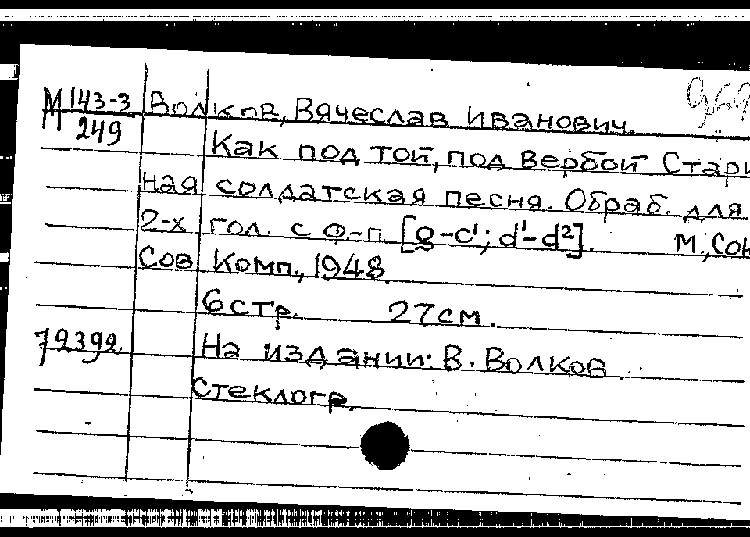 М 143-3 Волков, Вячеслав Иванович.
249 Как под той, под вербой Стари
ная солдатская песня. Обраб. для
2-х гол. с ф-п [g-c¹; d¹-d²]. М., Сою
Сов Комп., 1948
6 стр. 27 см.
72392 На издании: В. Волков
Стеклогр.